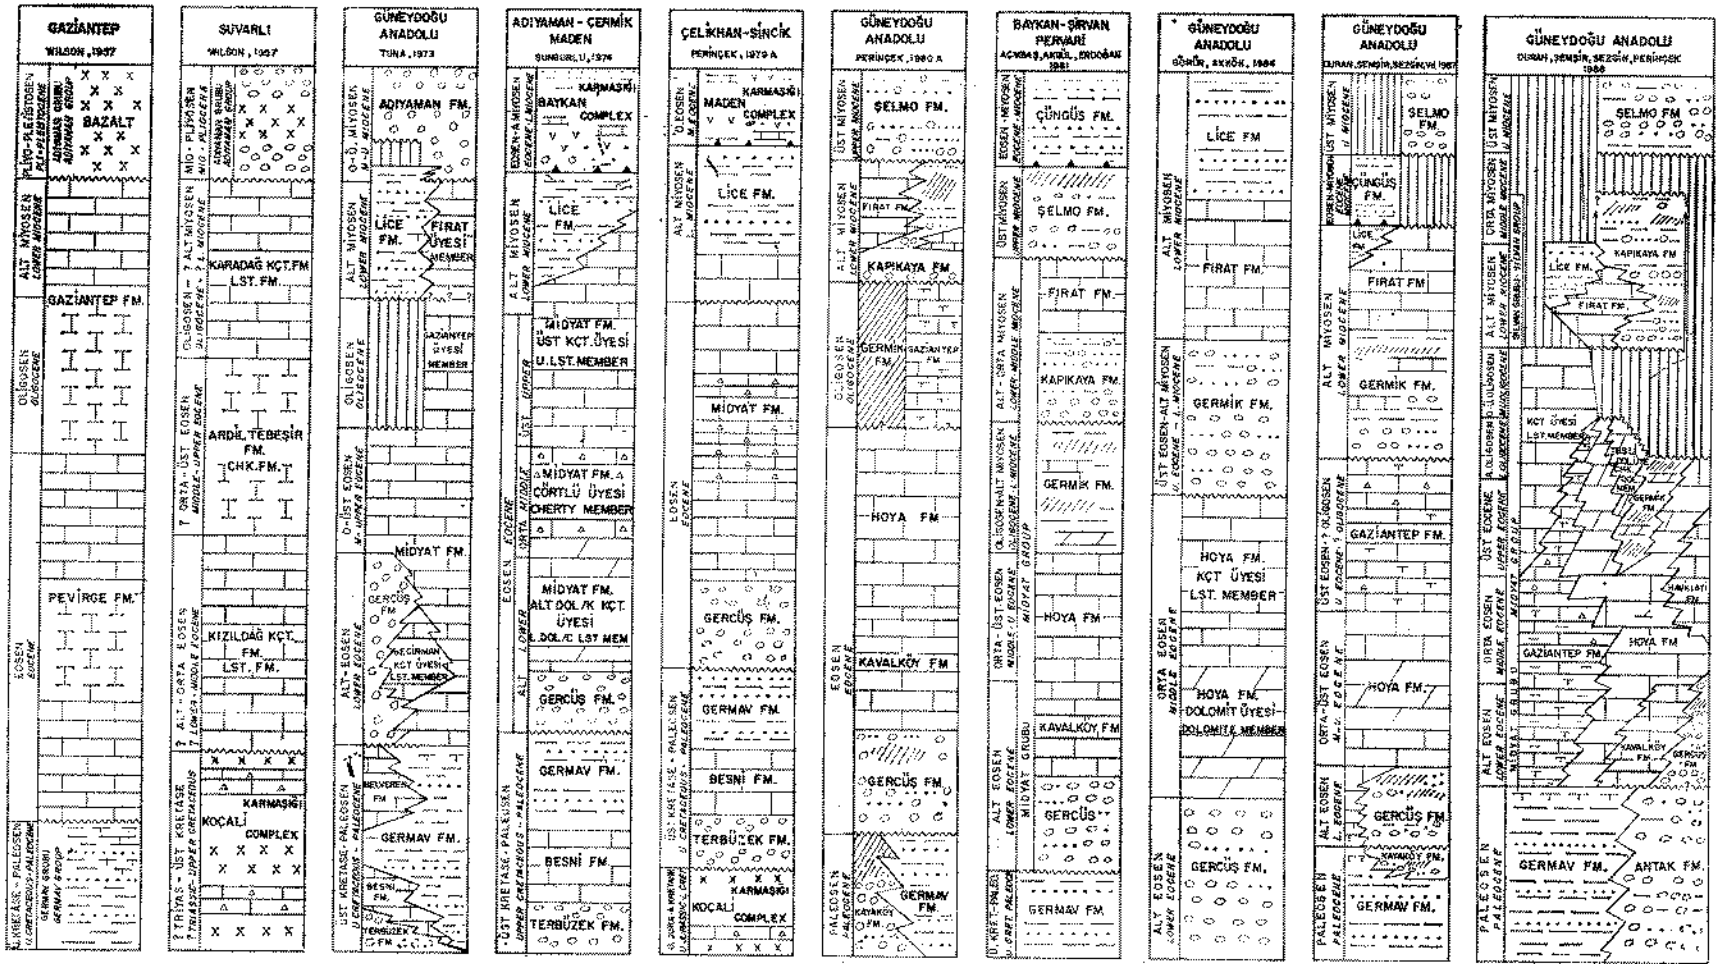 GAZİANTEP
WILSON, 1957
PLİYO-PLEİSTOSEN
ADIYAMAN GRUBU
ADIYAMAN GROUP
BAZALT
ALT MİYOSEN
LOWER MIOCENE
GAZİANTEP FM.
OLİGOSEN
OLIGOCENE
PEVİRGE FM.
EOSEN
EOCENE
GERMAV GRUBU
GERMAV GROUP
SUVARLI
WILSON, 1957
MİO-PLİYOSEN
MIO-PLIOCENE
ADIYAMAN GRUBU
ADIYAMAN GROUP
KARADAĞ KÇT.FM
LST. FM.
? ORTA-ÜST EOSEN
MIDDLE-UPPER EOCENE
ARDIL TEBEŞİR
FM.
CHK.FM.
? ALT-ORTA EOSEN
? LOWER-MIDDLE EOCENE
KIZILDAĞ KÇT.
FM.
LST. FM.
? TRİYAS-ÜST KRETASE
? TRIASSIC-UPPER CRETACEOUS
KARMAŞIĞI
KOÇALİ
COMPLEX
GÜNEYDOĞU
ANADOLU
TUNA, 1973
O-Ü. MİYOSEN
M-U MIOCENE
ADIYAMAN FM.
ALT MİYOSEN
LOWER MIOCENE
LİCE
FM.
FIRAT
ÜYESİ
MEMBER
OLİGOSEN
OLIGOCENE
GAZİANTEP
ÜYESİ
MEMBER
O-ÜST EOSEN
M-UPPER EOCENE
MİDYAT FM.
ALT-EOSEN
LOWER EOCENE
GERCÜŞ
FM
KÇT ÜYESİ
LST. MEMBER
ÜST KRETASE-PALEOSEN
U. CRETACEOUS-PALEOCENE
BELVEREN
FM
GERMAV FM.
BESNİ
FM.
TERBÜZEK
FM
ADIYAMAN-ÇERMİK
MADEN
SUNGURLU, 1974
KARMAŞIĞI
BAYKAN
COMPLEX
ALT MİYOSEN
LOWER MIOCENE
LİCE
FM.
EOSEN
EOCENE
ÜST UPPER
MİDYAT FM.
ÜST KÇT. ÜYESİ
U. LST. MEMBER
ORTA MIDDLE
MİDYAT FM.
ÇÖRTLÜ ÜYESİ
CHERTY MEMBER
ALT LOWER
MİDYAT FM.
ALT DOL/K KÇT.
ÜYESİ
L.DOL/C LST MEM
GERCÜŞ FM.
ÜST KRETASE-PALEOSEN
UPPER CRETACEOUS-PALEOCENE
GERMAV FM.
BESNİ FM.
TERBÜZEK FM.
ÇELİKHAN-SİNCİK
PERİNÇEK, 1979 A
KARMAŞIĞI
MADEN
COMPLEX
ALT MİYOSEN
L. MIOCENE
LİCE FM.
EOSEN
EOCENE
MİDYAT FM.
GERCÜŞ FM.
ÜST KRETASE-PALEOSEN
U CRETACEOUS-PALEOCENE
GERMAV FM.
BESNİ FM.
TERBÜZEK FM.
KARMAŞIĞI
KOÇALİ
COMPLEX
GÜNEYDOĞU
ANADOLU
PERİNÇEK, 1980 A
ÜST MİYOSEN
UPPER MIOCENE
ŞELMO FM.
ALT MİYOSEN
LOWER MIOCENE
FIRAT FM
KAPIKAYA FM.
OLİGOSEN
OLIGOCENE
GERMİK
FM.
GAZİANTEP
FM
EOSEN
EOCENE
HOYA FM
KAVALKÖY FM
GERCÜŞ FM.
PALEOSEN
PALEOCENE
KAYAKÖY
FM.
GERMAV
FM.
BAYKAN-ŞİRVAN
PERVARİ
AÇIKBAŞ, AKGÜL, ERDOĞAN
1981
EOSEN-MİYOSEN
EOCENE-MIOCENE
ÇÜNGÜŞ
FM.
ÜST MİYOSEN
UPPER MIOCENE
ŞELMO FM.
ALT-ORTA MİYOSEN
LOWER-MIDDLE MIOCENE
FIRAT FM.
KAPIKAYA FM.
OLİGOSEN-ALT MİYOSEN
OLIGOCENE-L. MIOCENE
GERMİK FM.
ORTA-ÜST EOSEN
MIDDLE-U EOCENE
MİDYAT GRUBU
MİDYAT GROUP
HOYA FM
KAVALKÖY FM
ALT EOSEN
LOWER EOCENE
GERCÜŞ
GERMAV FM.
GÜNEYDOĞU
ANADOLU
GÖRÜR, AKKÖK, 1984
ALT MİYOSEN
LOWER MIOCENE
LİCE FM
FIRAT FM.
ÜST EOSEN-ALT MİYOSEN
U. EOCENE-L. MIOCENE
GERMİK FM.
ORTA EOSEN
MIDDLE EOCENE
HOYA FM.
KÇT ÜYESİ
LST. MEMBER
HOYA FM.
DOLOMİT ÜYESİ
DOLOMITE MEMBER
ALT EOSEN
LOWER EOCENE
GERCÜŞ FM.
GÜNEYDOĞU
ANADOLU
ÜST MİYOSEN
U MIOCENE
ŞELMO
FM.
ÇÜNGÜŞ
FM.
LİCE
FM
ALT MİYOSEN
LOWER MIOCENE
FIRAT FM
GERMİK FM.
ÜST EOSEN-? OLİGOSEN
U EOCENE-? OLIGOCENE
GAZİANTEP FM.
ORTA-ÜST EOSEN
M.-U. EOCENE
HOYA FM.
ALT EOSEN
L. EOCENE
GERCÜŞ FM.
KAYAKÖY FM.
PALEOSEN
PALEOCENE
GERMAV FM.
GÜNEYDOĞU ANADOLU
DURAN, ŞEMŞİR, SEZGİN, PERİNÇEK
1988
ÜST MİYOSEN
U MIOCENE
ŞELMO FM
ORTA MİYOSEN
MIDDLE MIOCENE
KAPIKAYA FM
ALT MİYOSEN
LOWER MIOCENE
LİCE FM.
FIRAT FM.
KÇT ÜYESİ
LST. MEMBER
GERMİK
FM.
ÜST EOSEN
UPPER EOCENE
ORTA EOSEN
MIDDLE EOCENE
MİDYAT GRUBU
MİDYAT GROUP
GAZİANTEP FM.
HOYA FM
ALT EOSEN
LOWER EOCENE
KAVALKÖY
FM
GERCÜŞ
FM
PALEOSEN
PALEOCENE
GERMAV FM.
ANTAK FM.